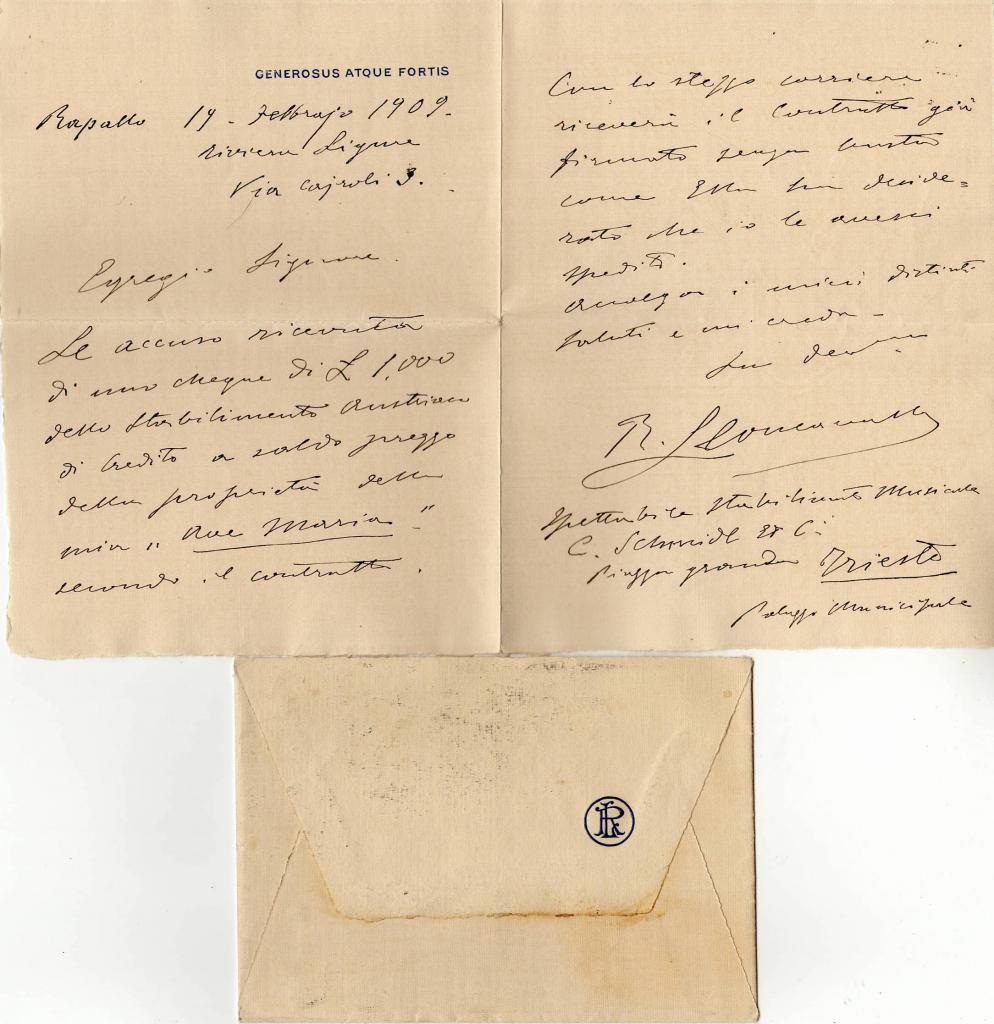 GENEROSUS ATQUE FORTIS
Rapallo 19 - Febbrajo 1909.
riviera Ligure
Via Cajroli 3.
Egregio Signore.
Le accuso ricevuta
di uno cheque di £ 1,000
dello Stabilimento Austriaco
di Credito a saldo prezzo
della proprietà della
mia „ Ave Maria "
secondo il contratto.
Con lo stesso corriere
riceverà il Contratto già
firmato senza busta
come Ella ha deside=
rato che io le avessi
spedito.
Accolga i miei distinti
saluti e mi creda -
Suo
R. Leoncavallo
Spettabile Stabilimento Musicale
C. Schmidl & C.
Piazza grande Trieste
Palazzo Municipale
RL